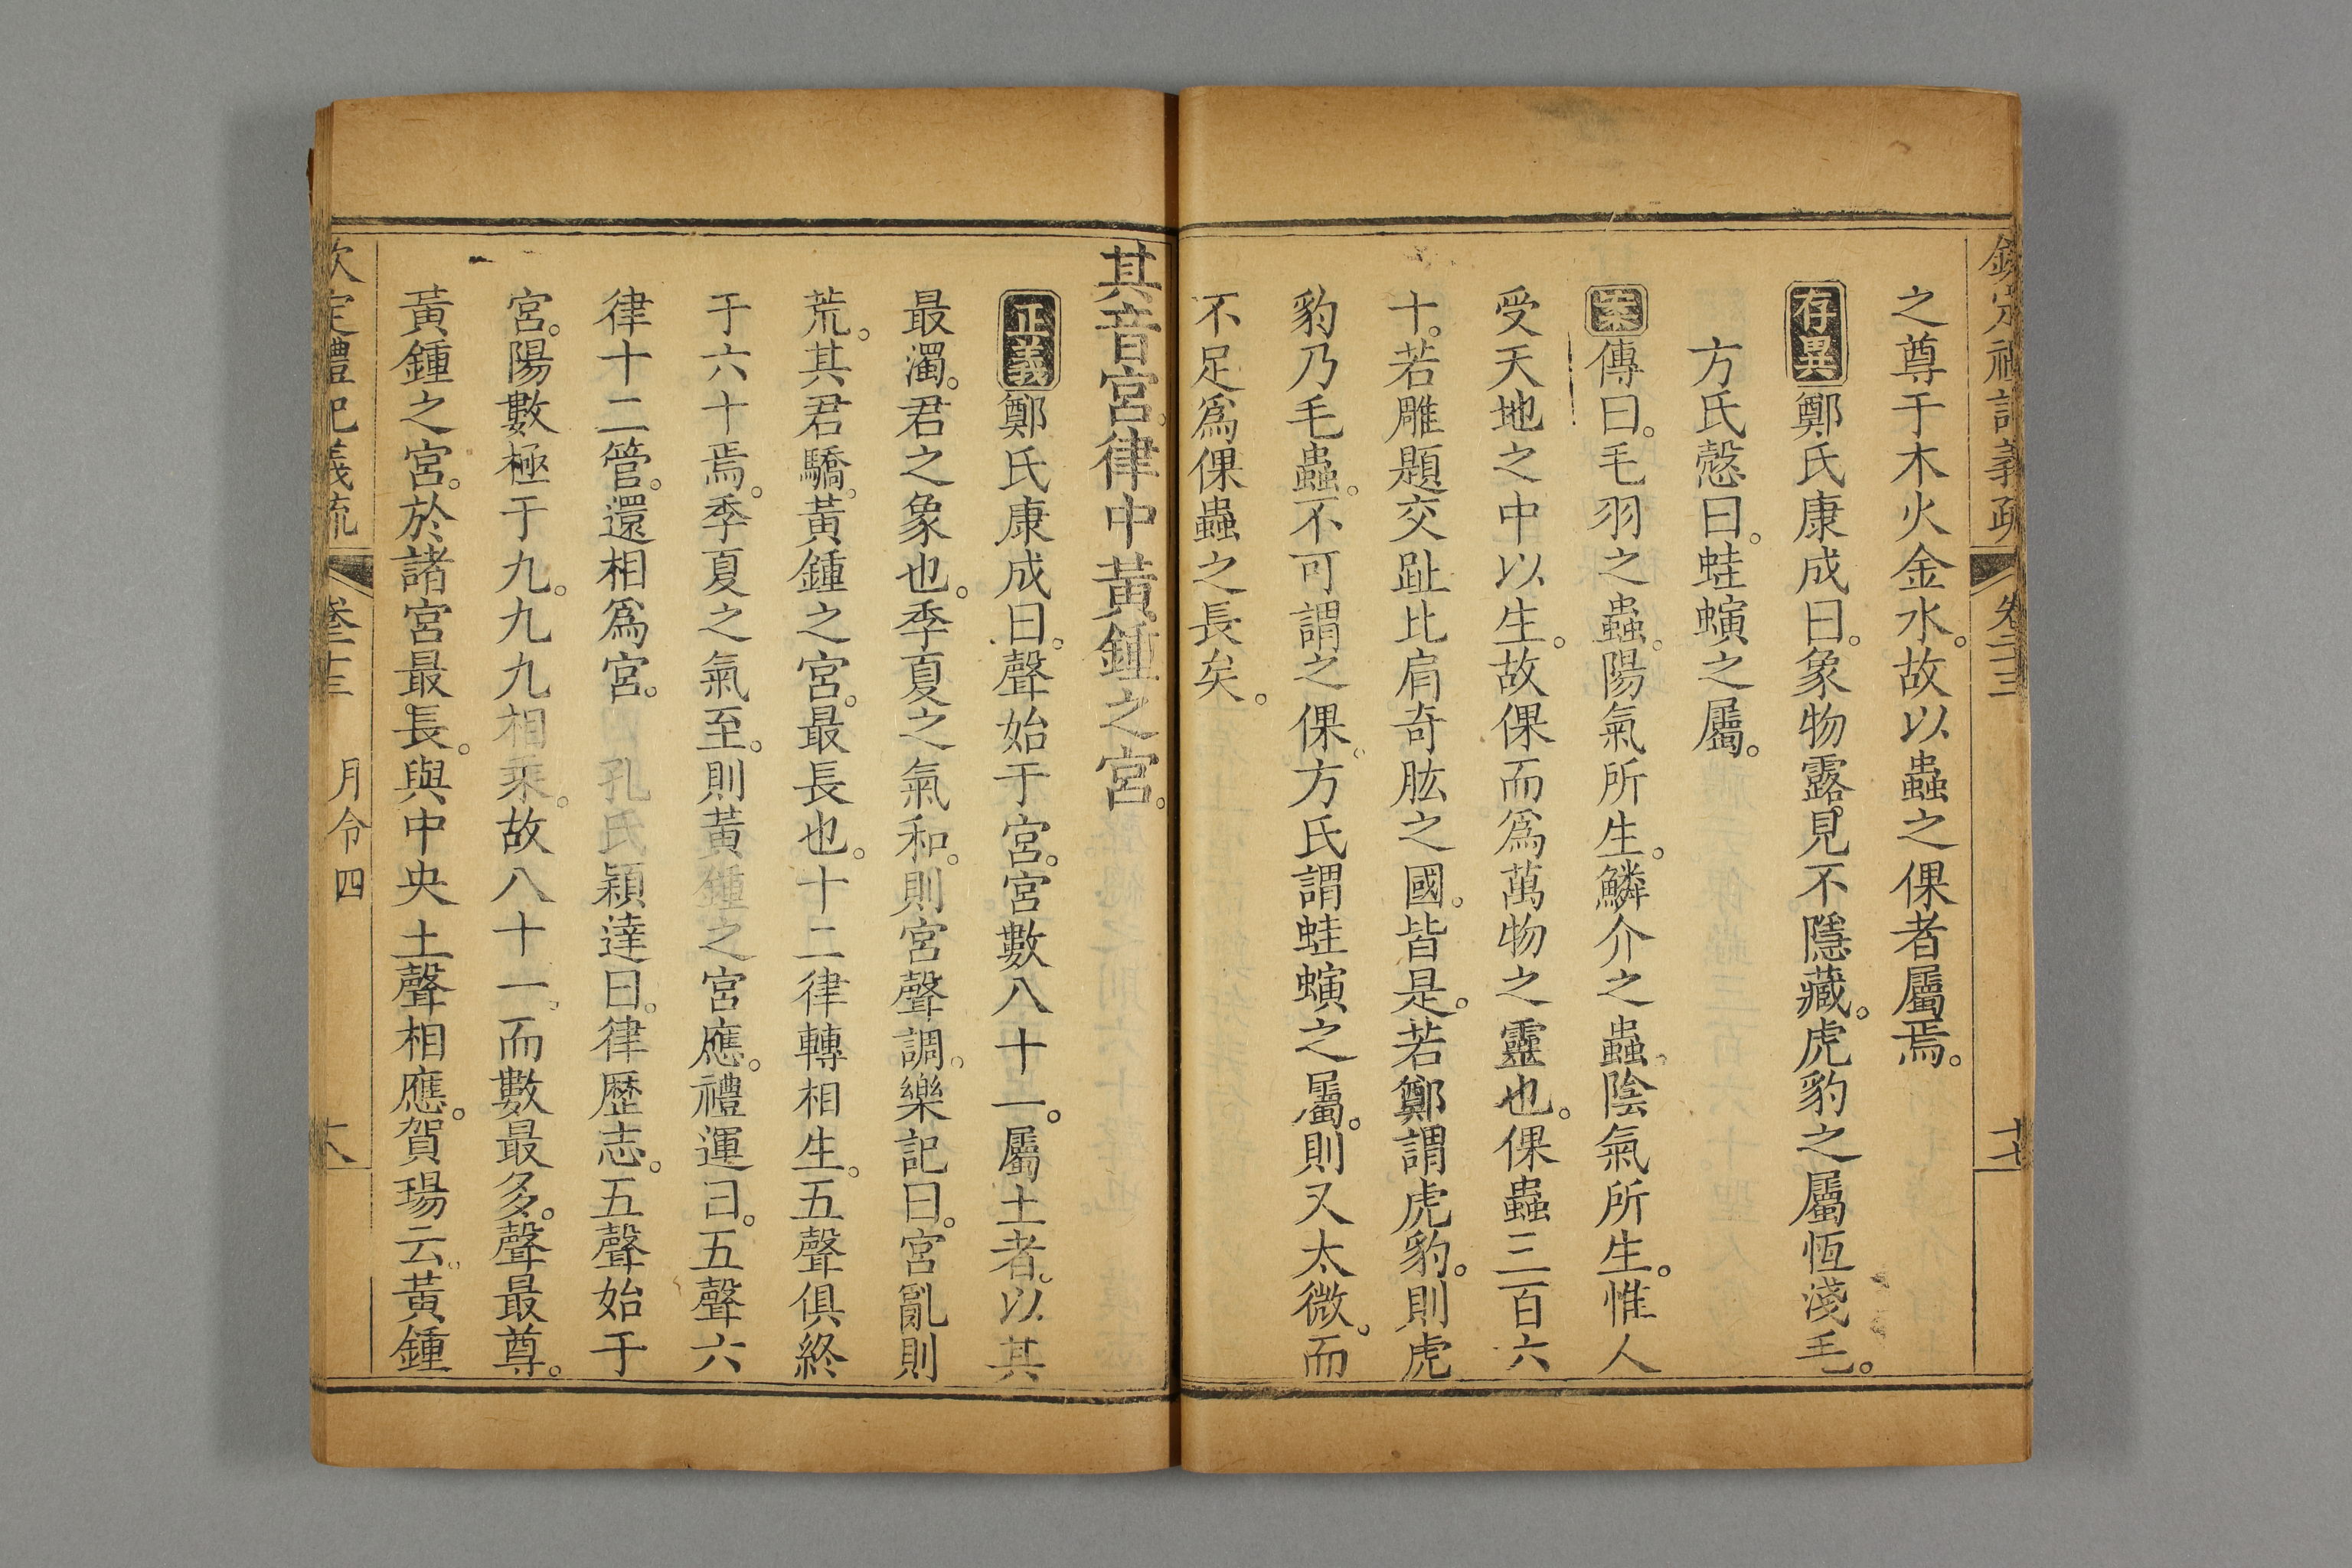 欽定禮記義疏 卷二十三 十七
之尊于木火金水。故以蟲之倮者屬焉。
存異鄭氏康成曰。象物露見不隱藏。虎豹之屬恆淺毛。
方氏慤曰。蛙螾之屬。
案傳曰。毛羽之蟲。陽氣所生。鱗介之蟲。陰氣所生。惟人
受天地之中以生。故倮而爲萬物之靈也。倮蟲三百六
十。若雕題交趾比肩奇肱之國。皆是。若鄭謂虎豹。則虎
豹乃毛蟲。不可謂之倮。方氏謂蛙螾之屬。則又太微。而
不足爲倮蟲之長矣。
其音宮。律中黃鍾之宮。
正義鄭氏康成曰。聲始于宮。宮數八十一。屬土者。以其
最濁。君之象也。季夏之氣和。則宮聲調。樂記曰。宮亂則
荒。其君驕。黃鍾之宮。最長也。十二律轉相生。五聲俱終
于六十焉。季夏之氣至。則黃鍾之宮應。禮運曰。五聲六
律十二管。還相爲宮。 孔氏穎達曰。律歷志。五聲始于
宮。陽數極于九。九九相乘。故八十一。而數最多。聲最尊。
黃鍾之宮。於諸宮最長。與中央土聲相應。賀瑒云。黃鍾
欽定禮記義疏 卷二十三 月令四 十八